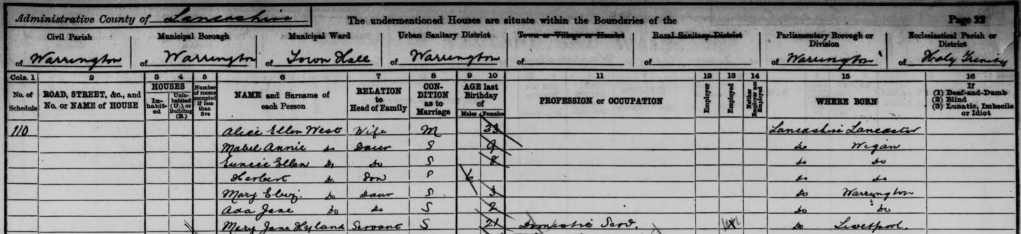 Administrative County of Lancashire The undermentioned Houses are situate within the Boundaries of the Page 22
Civil Parish Municipal Borough Municipal Ward Urban Sanitary District Town or Village or Hamlet Rural Sanitary District Parliamentary Borough or Division Ecclesiastical Parish or District
of Warrington of Warrington of Town Hall of Warrington of of of Warrington of Holy Trinity
Cols. 1 2 3 4 5 6 7 8 9 10 11 12 13 14 15 16
No. of Schedule ROAD, STREET, &c., and No. or NAME of HOUSE HOUSES Inhabited Uninhabited (U.) or Building (B.) Number of rooms occupied if less than five NAME and Surname of each Person RELATION to Head of Family CONDITION as to Marriage AGE last Birthday of Males Females PROFESSION or OCCUPATION Employer Employed Neither Employer nor Employed WHERE BORN If (1) Deaf-and-Dumb (2) Blind (3) Lunatic, Imbecile or Idiot
110 Alice Ellen West Wife M 33 Lancashire Lancaster
Mabel Annie do Daur S 9 do Wigan
Eunice Ellen do do S 8 do do
Herbert do Son S 6 do do
Mary Eliz. do Daur S 3 do Warrington
Ada Jane do do S 2 do do
Mary Jane Hyland Servant S 21 Domestic Serv. X do Liverpool.